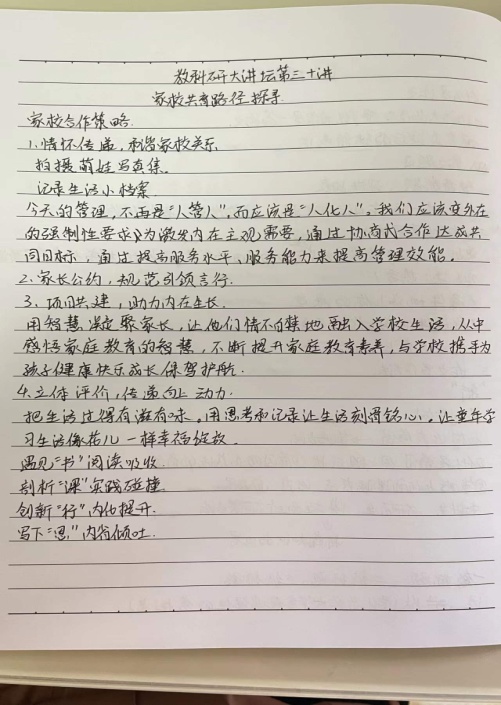 教科研大讲坛第三十讲
家校共育路径探寻
家校合作策略.
1.情怀传递,和谐家校关系
拍摄萌娃写真集.
记录生活小档案
今天的管理,不再是“人管人”,而应该是“人化人”。我们应该变外在
的强制性要求为激发内在主观需要,通过协商式合作达成共
同目标,通过提高服务水平、服务能力来提高管理效能。
2.家长公约,规范引领言行.
3.项目共建,助力内在生长.
用智慧凝聚家长,让他们情不自禁地融入学校生活,从中
感悟家庭教育的智慧,不断提升家庭教育素养,与学校携手为
孩子健康快乐成长保驾护航.
4.立体评价,传递向上动力.
把生活过得有滋有味.用思考和记录让生活刻骨铭心.让童年学
习生活像花儿一样幸福绽放.
遇见“书”阅读吸收
剖析“课”实践碰撞
创新“行”内化提升.
写下“思”内省倾吐.